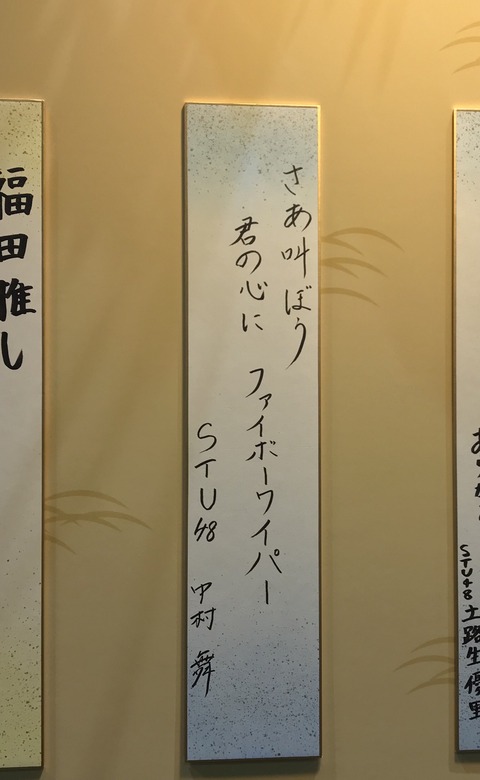 さあ叫ぼう
君の心に ファイボーワイパー
STU48 中村 舞
福田推し
STU48 土路生優里